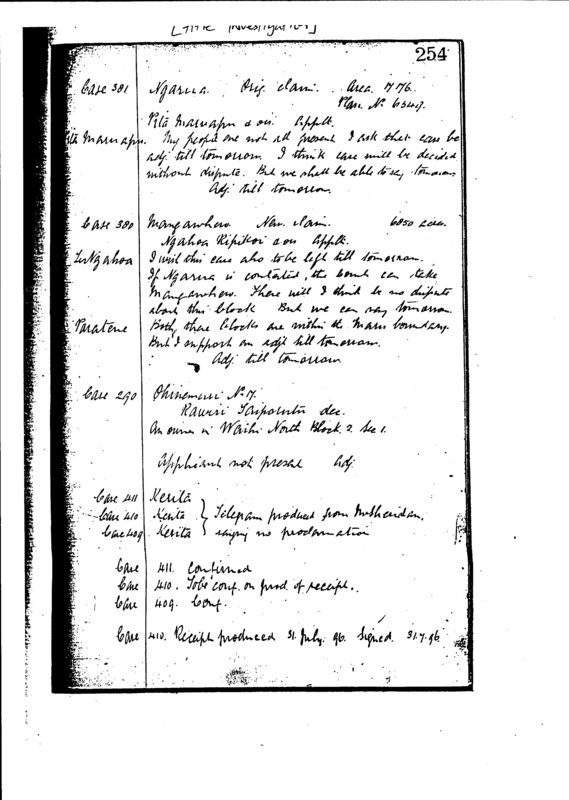 [Title Investigation]
254
Case 381 Ngarua. Orig. claim. Area 7176.
Plan No 6349.
Rita Maruapu & ors. Applt.
Rita Maruapu. My people are not all present. I ask that case be
adj. till tomorrow. I think case will be decided
without dispute. But we shall be able to say tomorrow
Adj till tomorrow.
Case 380 Mangawhero New claim. 6050 acres.
Ngahoa Ripikoi & ors Applt.
Ngahoa I wish this case also to be left till tomorrow.
If Ngarua is contested, the Court can take
Mangawhero. There will I think be no dispute
about this block But we can say tomorrow
Paratene Both these blocks are within the boundary.
But I support an adjt till tomorrow.
Adj till tomorrow
Case 290 Ohinemuri No 17.
Rawiri dec.
An owner in Waihi North Block 2 Sec 1.
Applicant not present Adj
Case 411 Kerita
Case 410 Kerita } Telegram produced from Mr Sheridan.
Case 409 Kerita saying no proclamation
Case 411. Confirmed
Case 410. To be conf. on prod. of receipt.
Case 409. Conf.
Case 410. Receipt produced 31 July. 96. Signed. 31.7.96